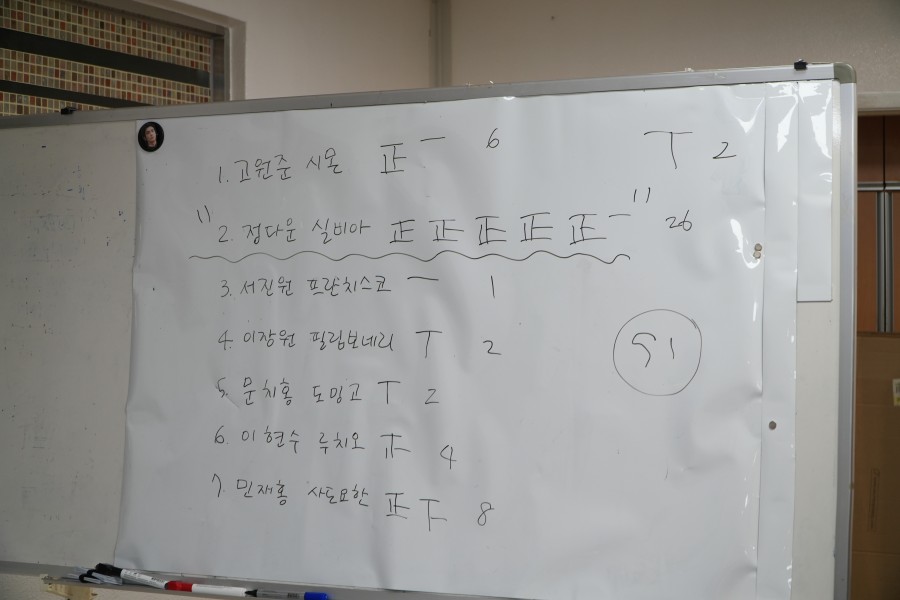 1. 고원준 시몬 正一 6 丅 2
" 2. 정다운 실비아 正正正正正一 " 26
3. 서진원 프란치스코 一 1
4. 이장원 필립보네리 丅 2
51
5. 문치홍 도밍고 丅 2
6. 이현수 루치오 止 4
7. 민재홍 사도요한 正下 8